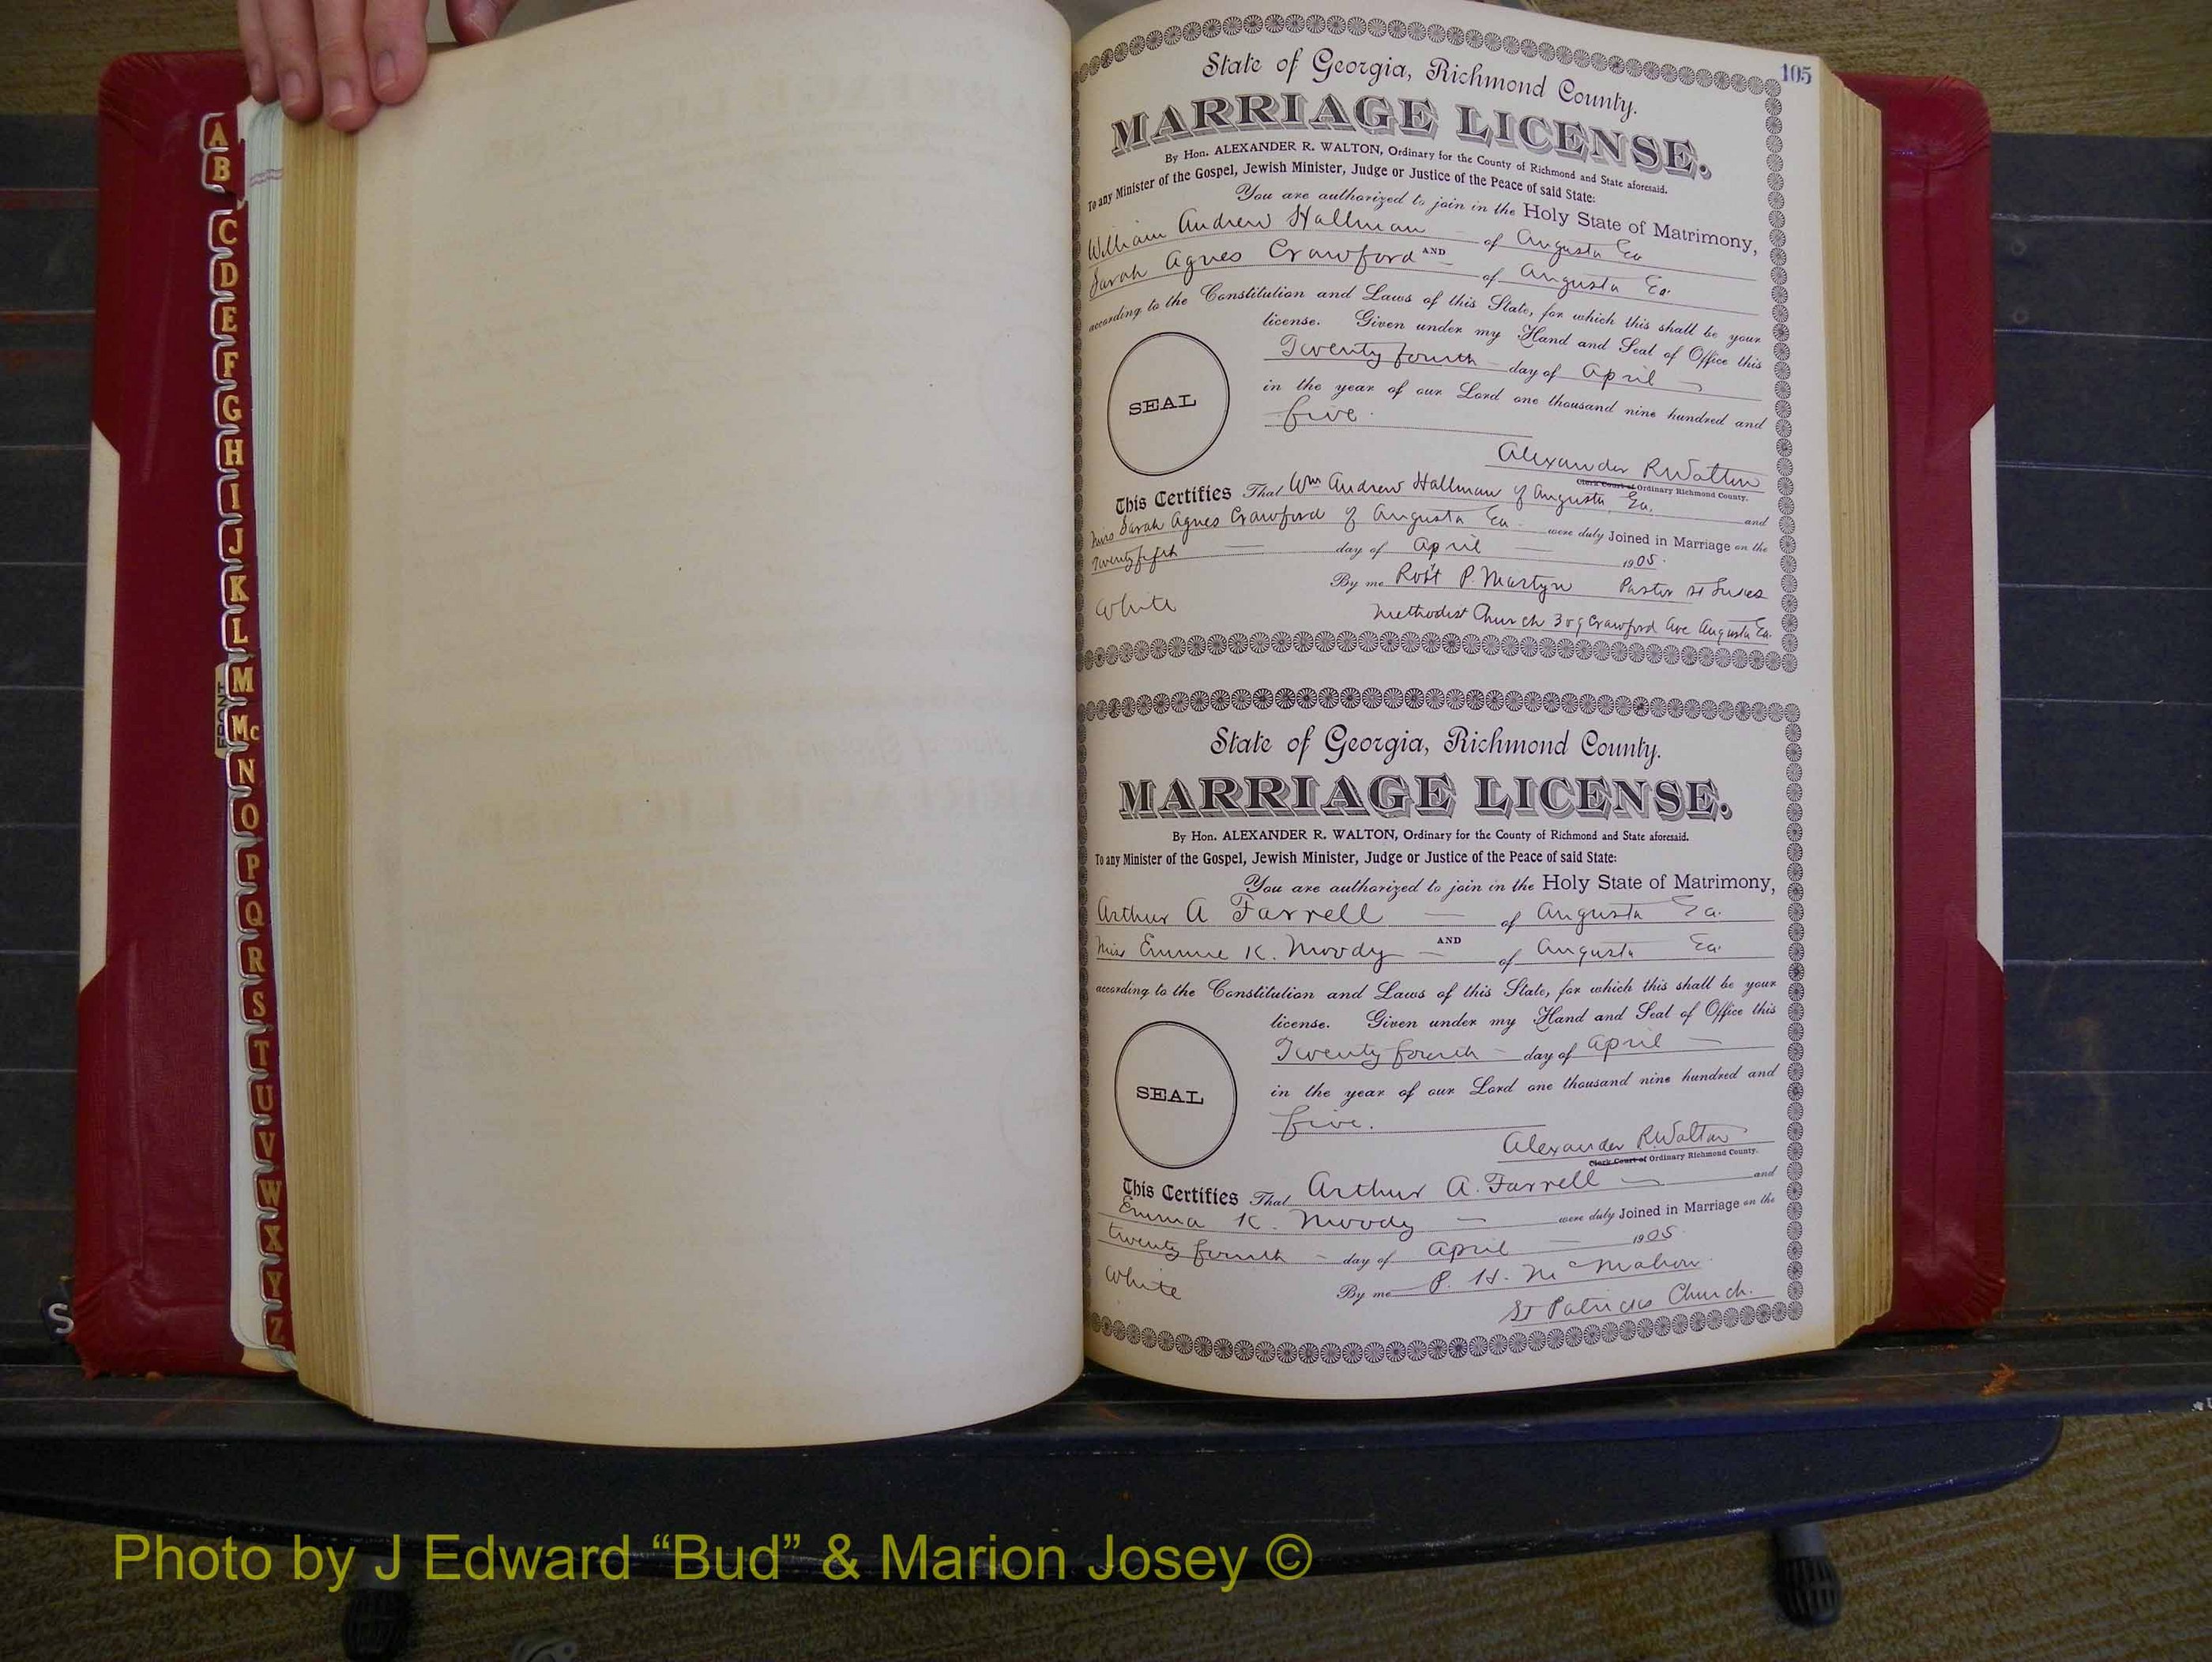 A
B
C
D
E
F
G
H
I
J
K
L
M
Mc
N
O
P
Q
R
S
T
U
V
W
X
Y
Z
FRONT
105
State of Georgia, Richmond County.
MARRIAGE LICENSE.
By Hon. ALEXANDER R. WALTON, Ordinary for the County of Richmond and State aforesaid.
To any Minister of the Gospel, Jewish Minister, Judge or Justice of the Peace of said State:
You are authorized to join in the Holy State of Matrimony,
William Andrew Hallman of Augusta Ga
AND
Sarah Agnes Crawford of Augusta Ga.
according to the Constitution and Laws of this State, for which this shall be your
license. Given under my Hand and Seal of Office this
Twenty fourth day of April
in the year of our Lord one thousand nine hundred and
five.
SEAL
Alexander R Walton
Clerk Court of Ordinary Richmond County.
This Certifies That Wm Andrew Hallman of Augusta, Ga. and
Miss Sarah Agnes Crawford of Augusta Ga were duly Joined in Marriage on the
Twenty fifth day of April 1905.
By me Robt P. Martyn Pastor St Lukes
White
Methodist Church 309 Crawford Ave Augusta Ga.
State of Georgia, Richmond County.
MARRIAGE LICENSE.
By Hon. ALEXANDER R. WALTON, Ordinary for the County of Richmond and State aforesaid.
To any Minister of the Gospel, Jewish Minister, Judge or Justice of the Peace of said State:
You are authorized to join in the Holy State of Matrimony,
Arthur A Farrell of Augusta Ga.
AND
Miss Emmie K. Moody of Augusta Ga.
according to the Constitution and Laws of this State, for which this shall be your
license. Given under my Hand and Seal of Office this
Twenty fourth day of April
in the year of our Lord one thousand nine hundred and
five.
SEAL
Alexander R. Walton
Clerk Court of Ordinary Richmond County.
This Certifies That Arthur A. Farrell and
Emma K. Moody were duly Joined in Marriage on the
twenty fourth day of April 1905
White
By me P. H. McMahon
St Patricks Church.
S
Photo by J Edward “Bud” & Marion Josey ©